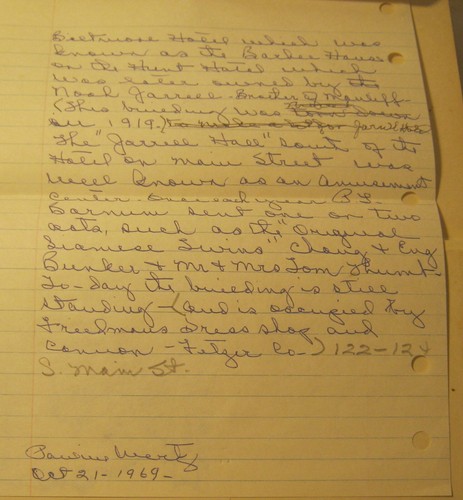 Baltimore Hotel which was
known as the Barber House
or the Hunt Hotel which
was later owned by the
Noah Jarrell Brother of Manliff
(This building was torn down
in 1919.) to make a
The "Jarrell Hall" south of the
Hotel on Main Street was
well known as an amusement
center. Once each year P.T.
Barnum sent one or two
acts, such as the "Original
Siamese Twins" Chang & Eng
Bunker & Mr & Mrs Tom Thumb-
To-day the building is still
standing - (and is occupied by
Freedmans Dress shop and
Cannon - Fetzer Co-) 122-124
S. Main St.
Pauline Mertz
Oct 21-1969-